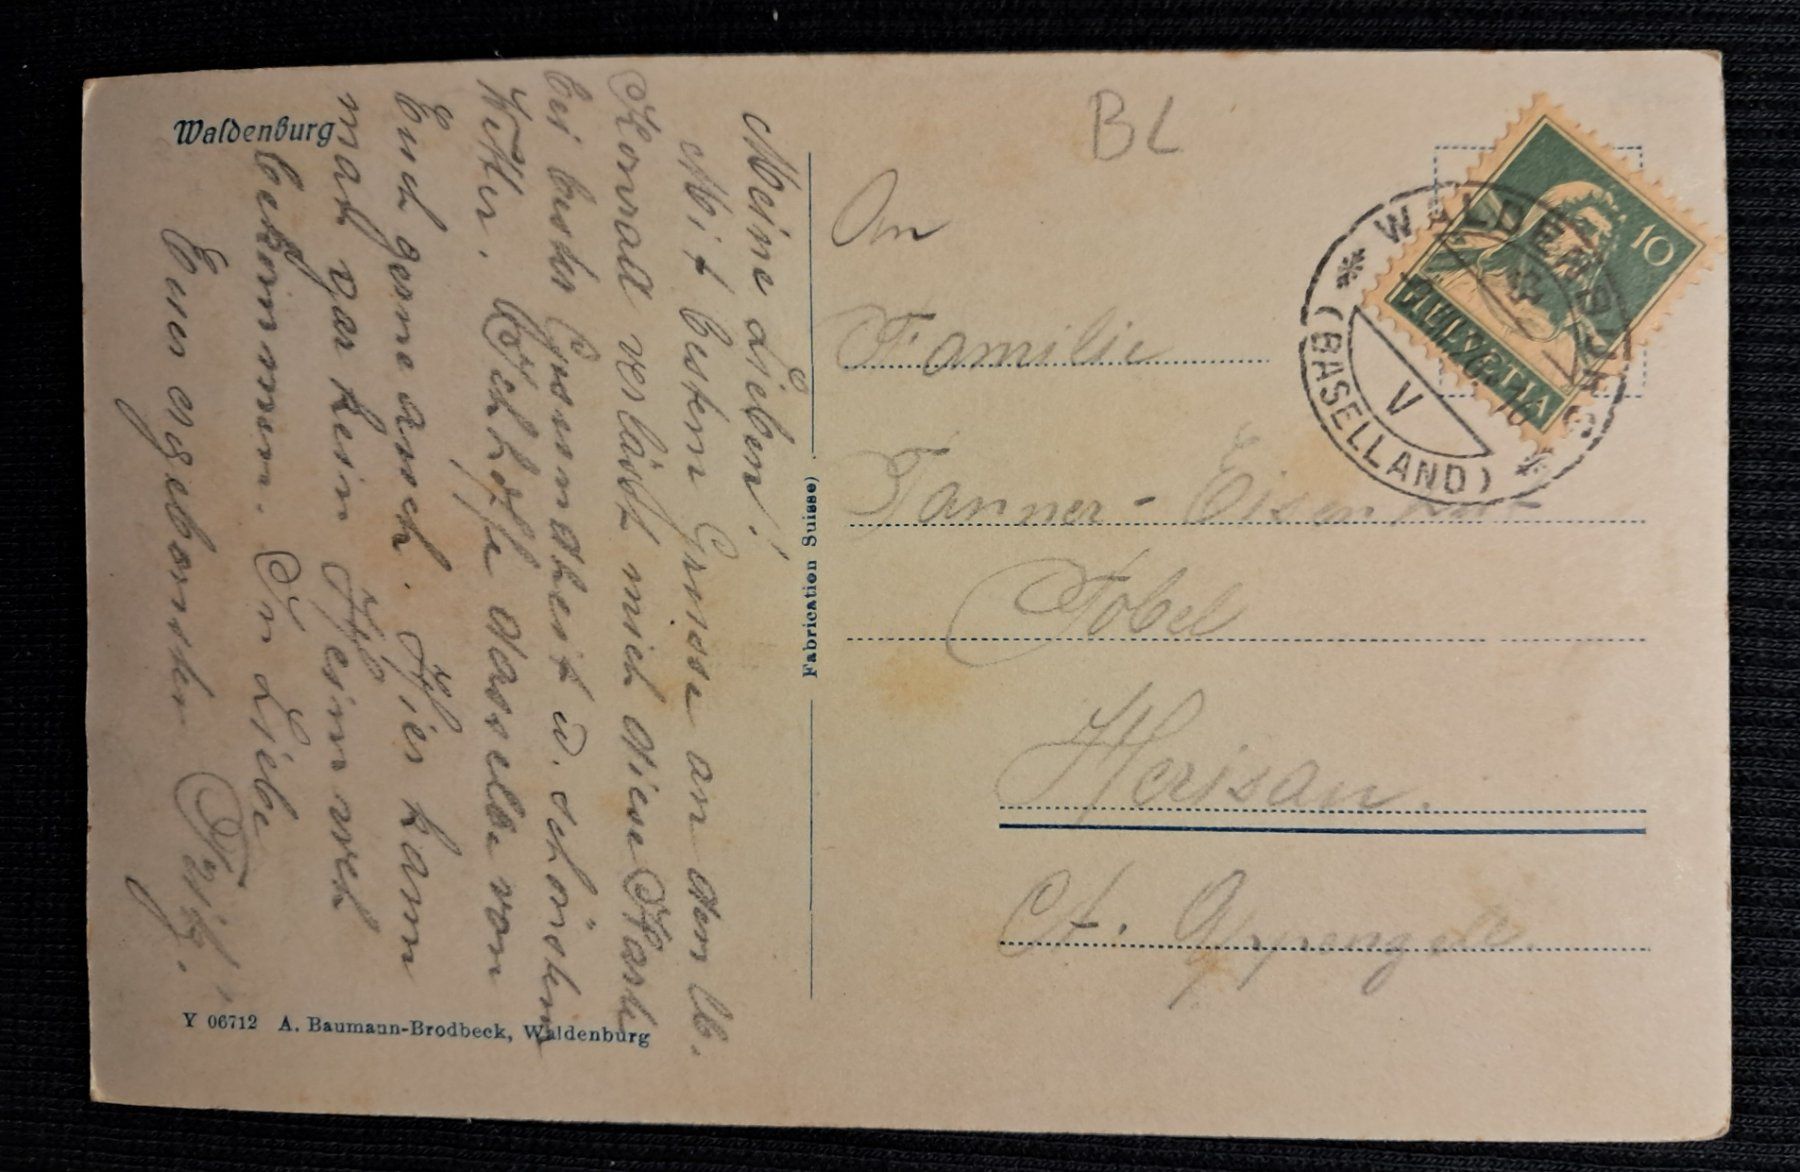 Waldenburg
Meine Lieben!
Mit besten Grüssen an den lb.
Konrad verlässt mich diese Karte
bei bester Gesundheit u. schönstem
Wetter. Ich hoffe dasselbe von
Euch gerne auch. Hier kann
man gar kein Heimweh
bekommen. In Liebe
Euer ergebenster
Fabrication Suisse
Y 06712 A. Baumann-Brodbeck, Waldenburg
BL
An
Familie
Tanner-Eisenhut
Tobel
Herisau.
Ct. Appenzell.
10
HELVETIA
WALDENBURG
V
(BASELLAND)